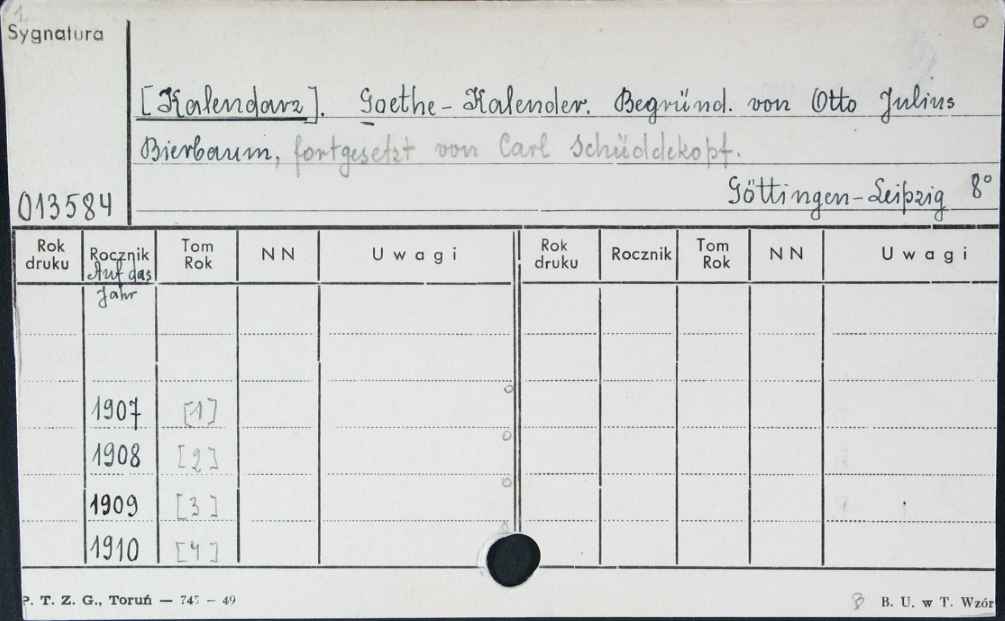 1.
Sygnatura
[Kalendarz]. Goethe-Kalender. Begründ. von Otto Julius
Bierbaum, fortgesetzt von Carl Schüddekopf.
Göttingen-Leipzig 8°
013584
Rok druku Rocznik Tom Rok NN Uwagi Rok druku Rocznik Tom Rok NN Uwagi
Auf das
Jahr
1907 [1]
1908 [2]
1909 [3]
1910 [4]
P. T. Z. G., Toruń — 747 – 49 B. U. w T. Wzór